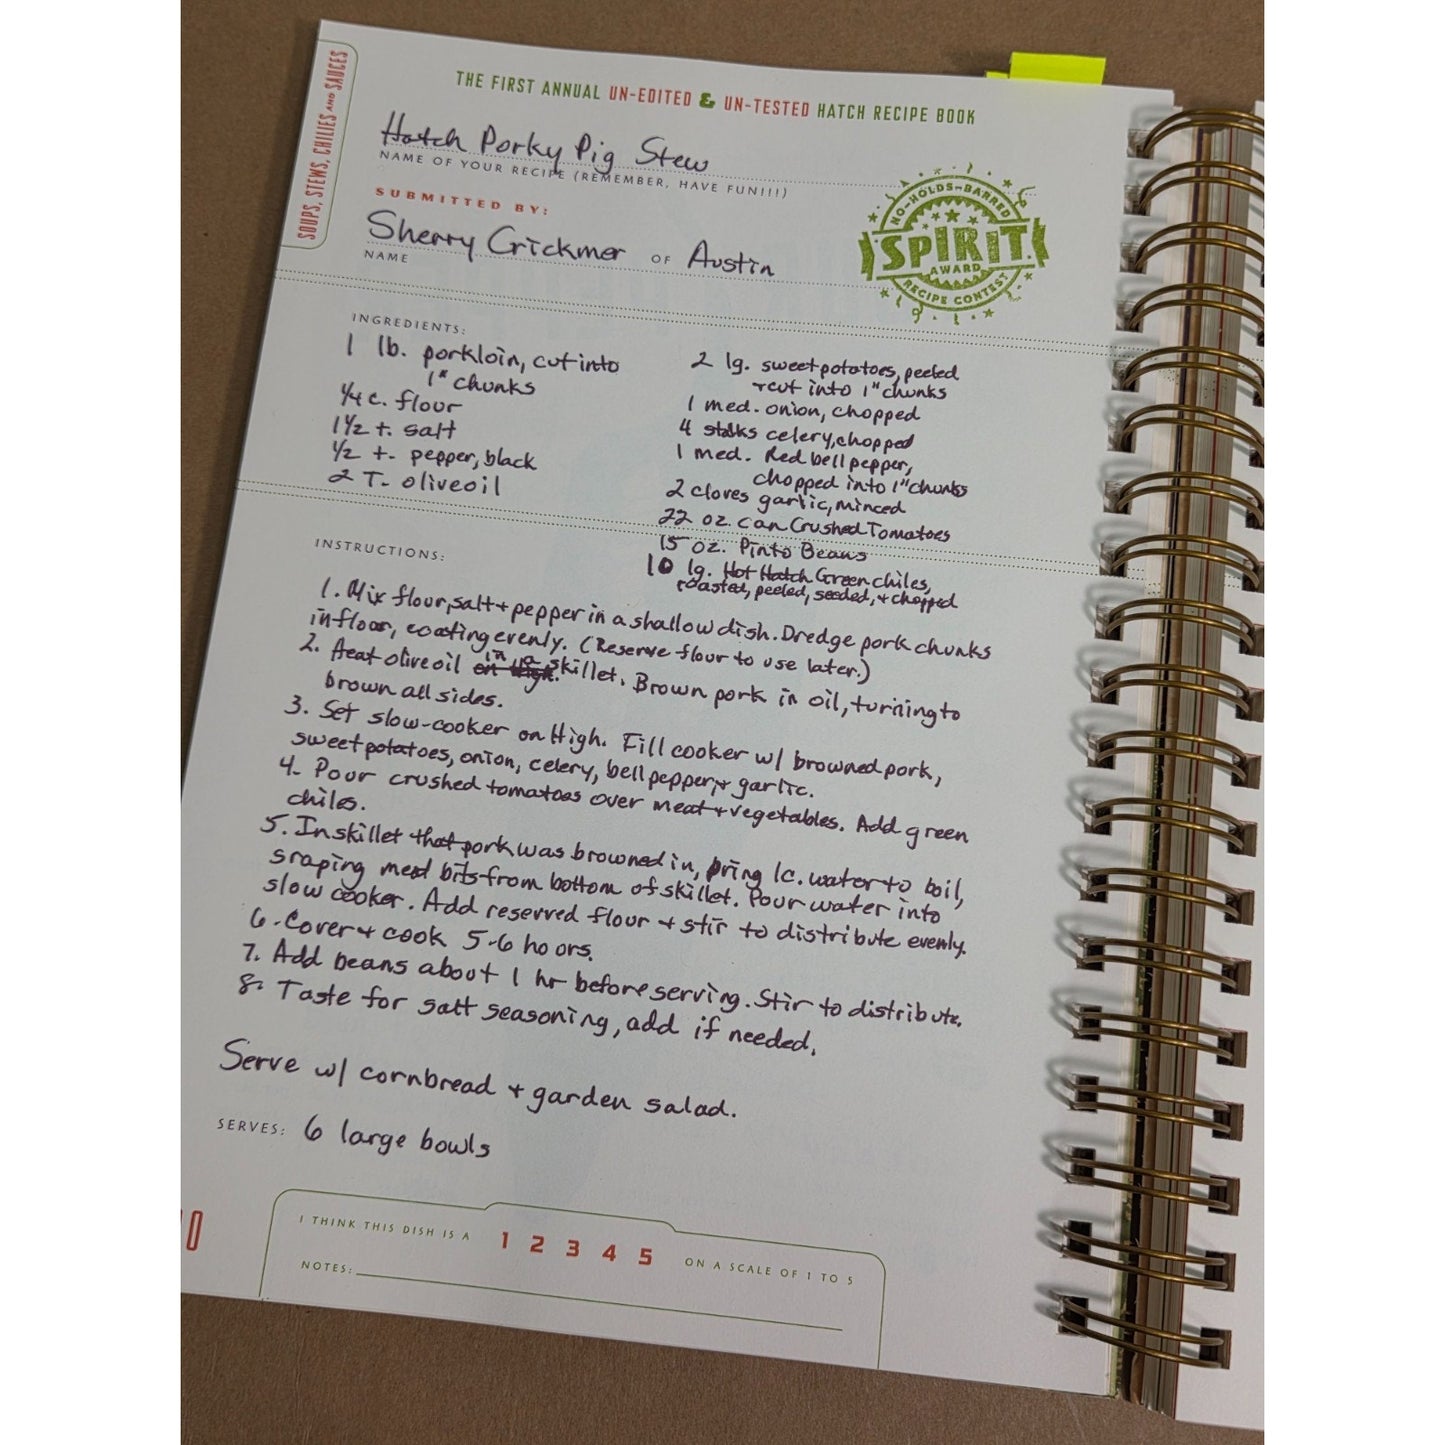 SOUPS, STEWS, CHILIES AND SAUCES
THE FIRST ANNUAL UN-EDITED & UN-TESTED HATCH RECIPE BOOK
Hatch Porky Pig Stew
NAME OF YOUR RECIPE (REMEMBER, HAVE FUN!!!)
SUBMITTED BY:
Sherry Crickmer OF Austin
NAME
NO-HOLDS-BARRED
SPIRIT
AWARD
RECIPE CONTEST
INGREDIENTS:
1 lb. porkloin, cut into
1" chunks
1/4 c. flour
1 1/2 t. salt
1/2 t. pepper, black
2 T. olive oil
2 lg. sweet potatoes, peeled
+ cut into 1" chunks
1 med. onion, chopped
4 stalks celery, chopped
1 med. Red bell pepper,
chopped into 1" chunks
2 cloves garlic, minced
22 oz. can Crushed Tomatoes
15 oz. Pinto Beans
10 lg. Hot Hatch Green chiles,
roasted, peeled, seeded, + chopped
INSTRUCTIONS:
1. Mix flour, salt + pepper in a shallow dish. Dredge pork chunks
in flour, coating evenly. (Reserve flour to use later.)
2. Heat olive oil in a skillet. Brown pork in oil, turning to
brown all sides.
3. Set slow-cooker on High. Fill cooker w/ browned pork,
sweet potatoes, onion, celery, bell pepper, + garlic.
4. Pour crushed tomatoes over meat + vegetables. Add green
chiles.
5. In skillet that pork was browned in, bring 1 c. water to boil,
sraping meat bits from bottom of skillet. Pour water into
slow cooker. Add reserved flour + stir to distribute evenly.
6. Cover + cook 5-6 hours.
7. Add beans about 1 hr before serving. Stir to distribute.
8. Taste for salt seasoning, add if needed.
Serve w/ cornbread + garden salad.
SERVES: 6 large bowls
I THINK THIS DISH IS A 1 2 3 4 5 ON A SCALE OF 1 TO 5
NOTES: